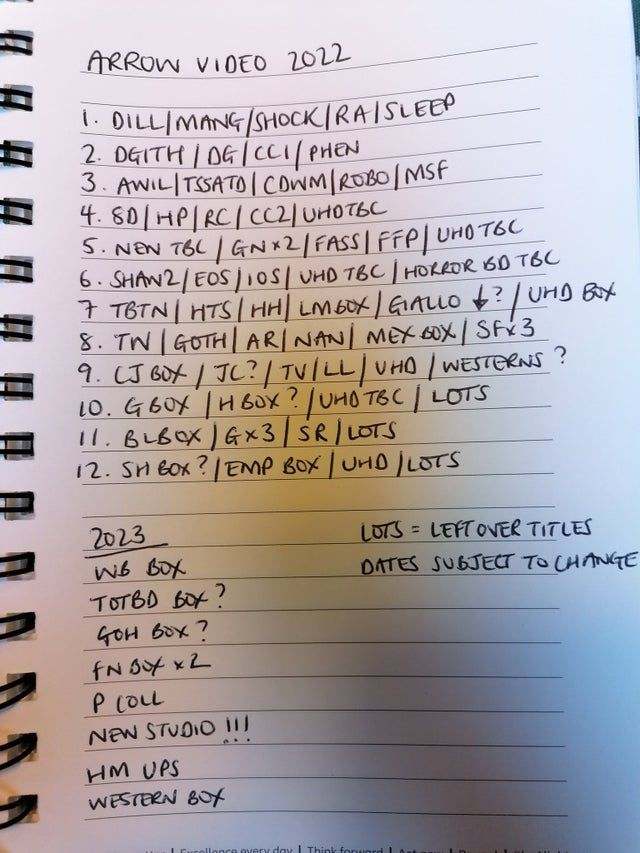 ARROW VIDEO 2022
1. DILL/MANG/SHOCK/RA/SLEEP
2. DGITH/DG/CC1/PHEN
3. AWIL/TSSATD/CDWM/ROBO/MSF
4. 8D/HP/RC/CC2/UHDTBC
5. NEW TBC/GN×2/FASS/FFP/UHDTBC
6. SHAW2/EOS/IOS/UHD TBC/HORROR BD TBC
7 TBTN/HTS/HH/LMBOX/GIALLO ↓?/UHD BOX
8. TW/GOTH/AR/NAN/MEX BOX/SF×3
9. CJ BOX/JC?/TV/LL/UHD/WESTERNS?
10. G BOX/H BOX?/UHDTBC/LOTS
11. BLBOX/G×3/SR/LOTS
12. SH BOX?/EMP BOX/UHD/LOTS
2023 LOTS = LEFTOVER TITLES
WB BOX DATES SUBJECT TO CHANGE
TOTBD BOX?
GOH BOX?
FN BOX ×2
P COLL
NEW STUDIO!!!
HM UPS
WESTERN BOX
Excellence every day | Think forward |